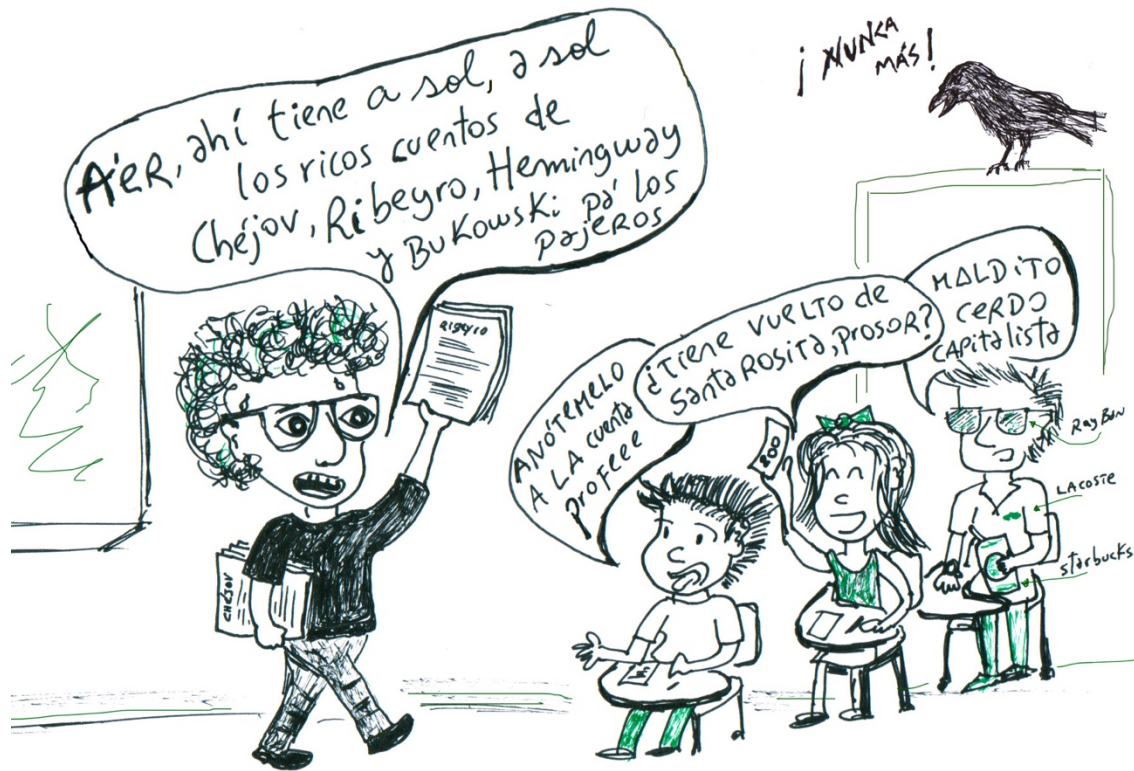 A'ER, ahí tiene a sol, a sol
los ricos cuentos de
Chéjov, Ribeyro, Hemingway
y Bukowski pá los
pajeros
¡NUNCA
MÁS!
RIBEYRO
CHÉJOV
ANÓTEMELO
A LA cuenta
profeee
¿Tiene vuelto de
Santa Rosita, prosor?
200
MALDITO
CERDO
CAPITALISTA
Ray Ban
LACOSTE
starbucks